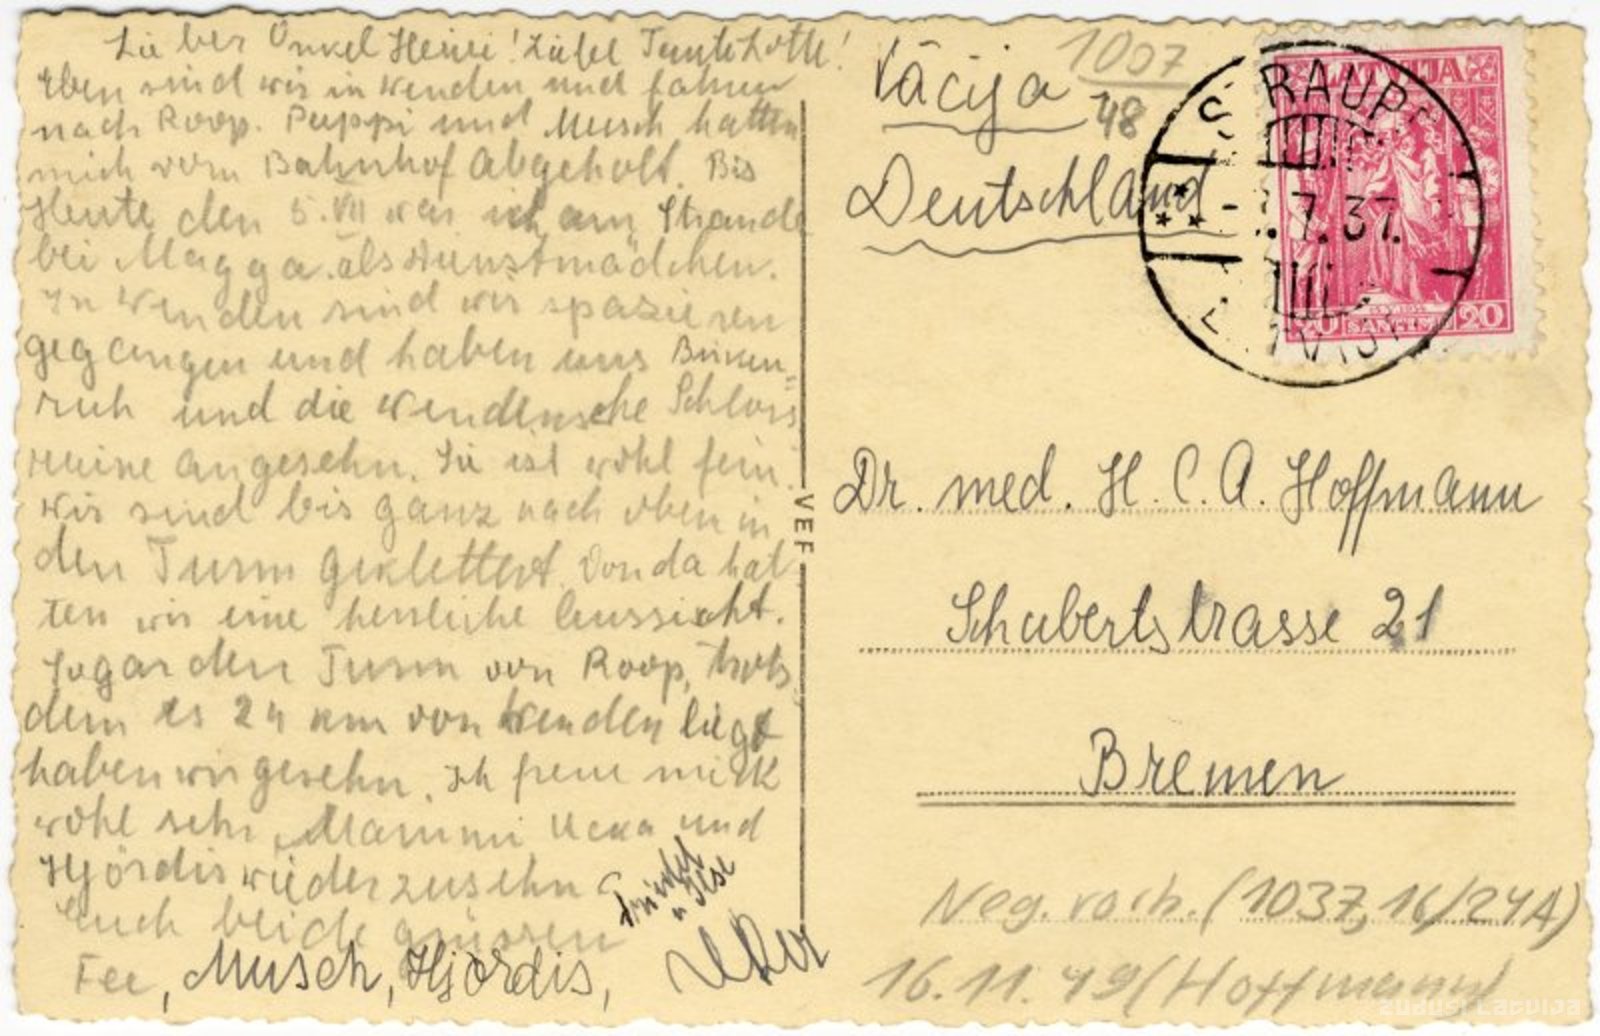 Lieber Onkel Heini! Liebe Tante Lotte!
Eben sind wir in Wenden und fahren
nach Roop. Puppi und Musch hatten
mich vom Bahnhof Abgeholt. Bis
Heute den 5. VII war ich am Strande
bei Magga als Kunstmädchen.
In Wenden sind wir spazieren
gegangen und haben uns Birken=
ruh und die Wendensche Schloss
ruine angesehn. Sie ist wohl fein.
wir sind bis ganz nach oben in
den Turm geklettert. Von da hat
ten wir eine herrliche Aussicht.
Sogar den Turm von Roop, trotz
dem es 24 km von Wenden liegt
haben wir gesehn. Ich freue mich
wohl sehr Mammi Ucka und
Hjördis wiederzusehn
Euch beide grüssen
Fee, Musch, Hjördis,
u Ilse
VEF
Vācija
Deutschland
1007
48
LATVIJA
20 SANTIMU 20
STRAUPE
7.37.
LATVIJA
Dr. med. H. C. A. Hoffmann
Schubertstrasse 21
Bremen
Neg. vorh. (1037, 16/24A)
16.11.49 (Hoffmann)
zudusi Latvija